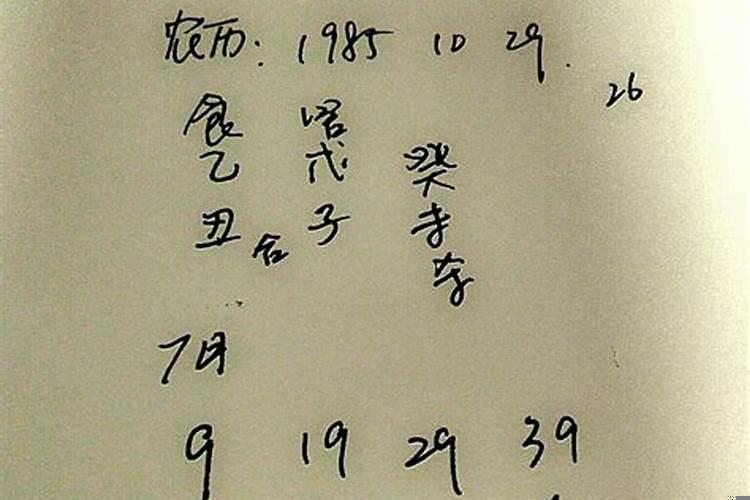 农历: 1985 10 29.
26
食 官
乙 戊 癸
丑 合 子
7月
9 19 29 39